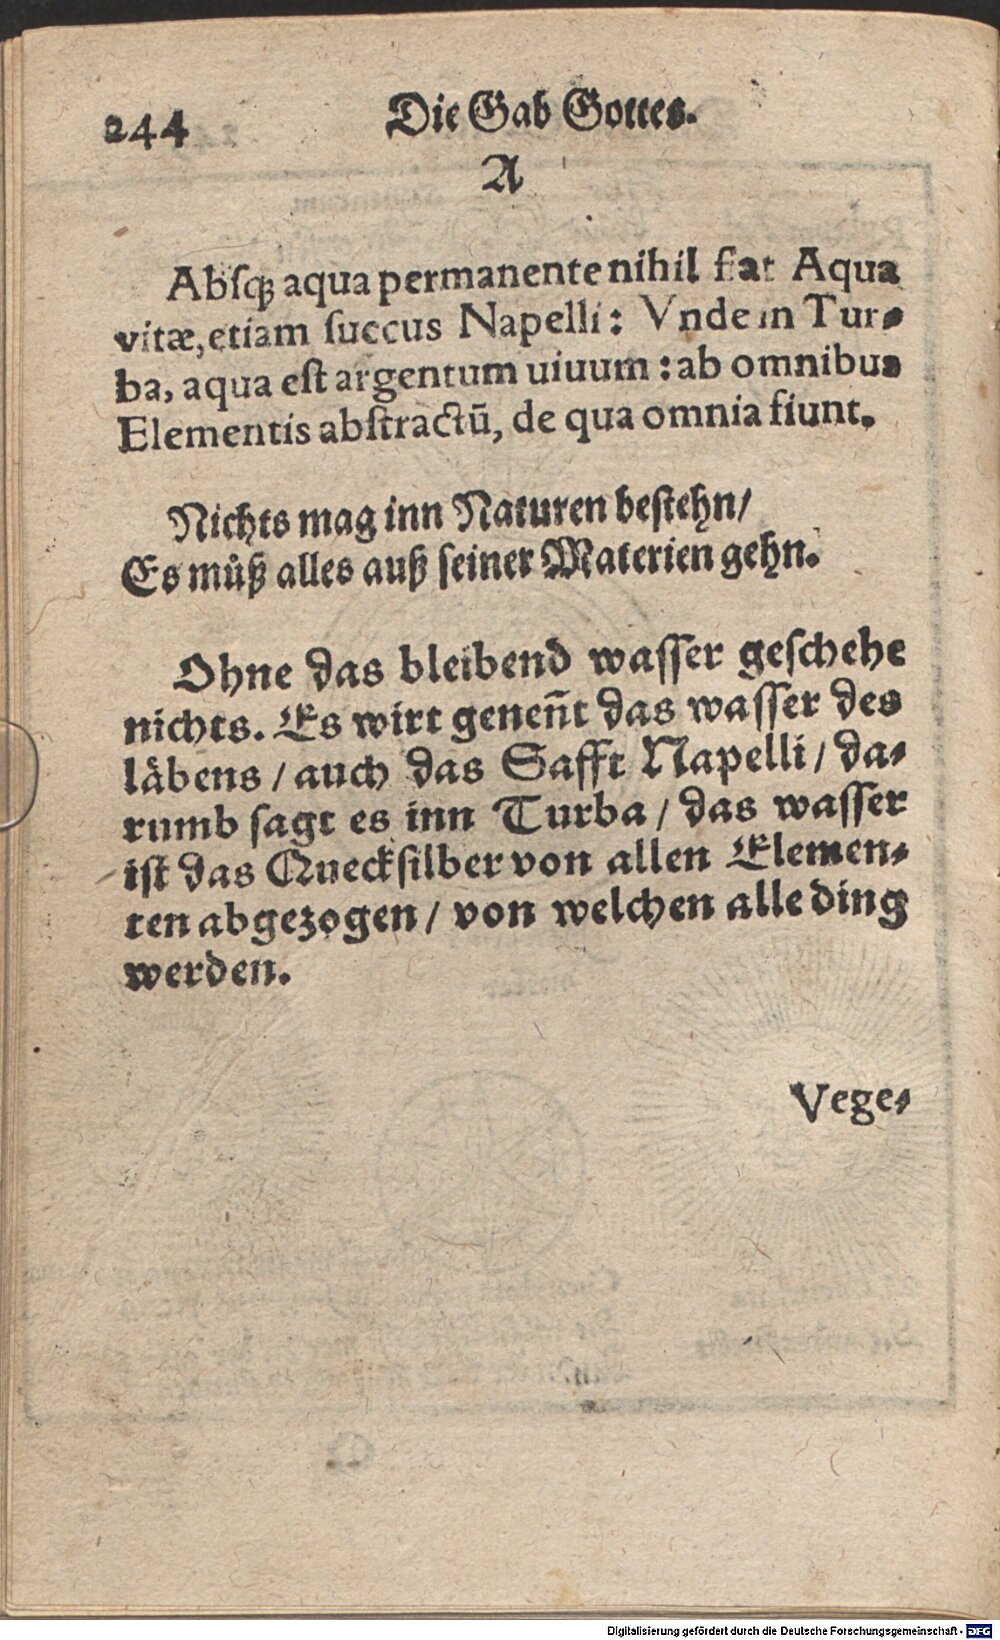 244 Die Gab Gottes.
A
Abſqꝫ aqua permanente nihil fiat Aqua
vitæ, etiam ſuccus Napelli: Vnde in Tur-
ba, aqua eſt argentum uiuum: ab omnibus
Elementis abſtractū, de qua omnia fiunt.
Nichts mag inn Naturen beſtehn/
Es muͤß alles auß ſeiner Materien gehn.
Ohne das bleibend waſſer geſchehe
nichts. Es wirt geneñt das waſſer des
laͤbens / auch das Safft Napelli / da-
rumb ſagt es inn Turba / das waſſer
iſt das Queckſilber von allen Elemen-
ten abgezogen / von welchen alle ding
werden.
Vege-
Digitalisierung gefördert durch die Deutsche Forschungsgemeinschaft - DFG